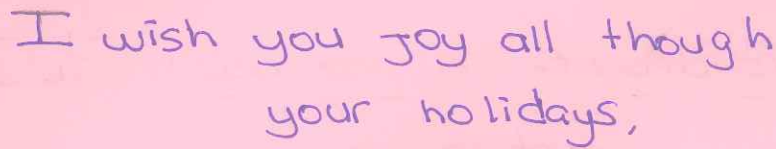 I wish you Joy all though
your holidays,